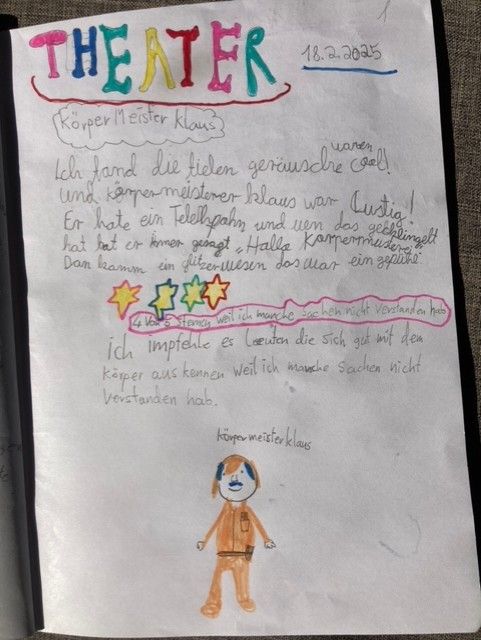 1
THEATER
18.2.2025
Körper Meister klaus
Ich fand die fielen geräusche waren Cool!
und körpermeisterer klaus war Lustig!
Er hate ein Telefhpahn und wen das geklingelt
hat hat er immer gesagt „Hallo Körpermeisterei
Dan kamm ein glitzerwesen das war ein gepühl
4 Von 5 sternen weil ich manche sachen nicht verstanden hab
ich impfehle es Leuten die sich gut mit dem
körper aus kennen weil ich manche sachen nicht
verstanden hab.
körpermeisterklaus